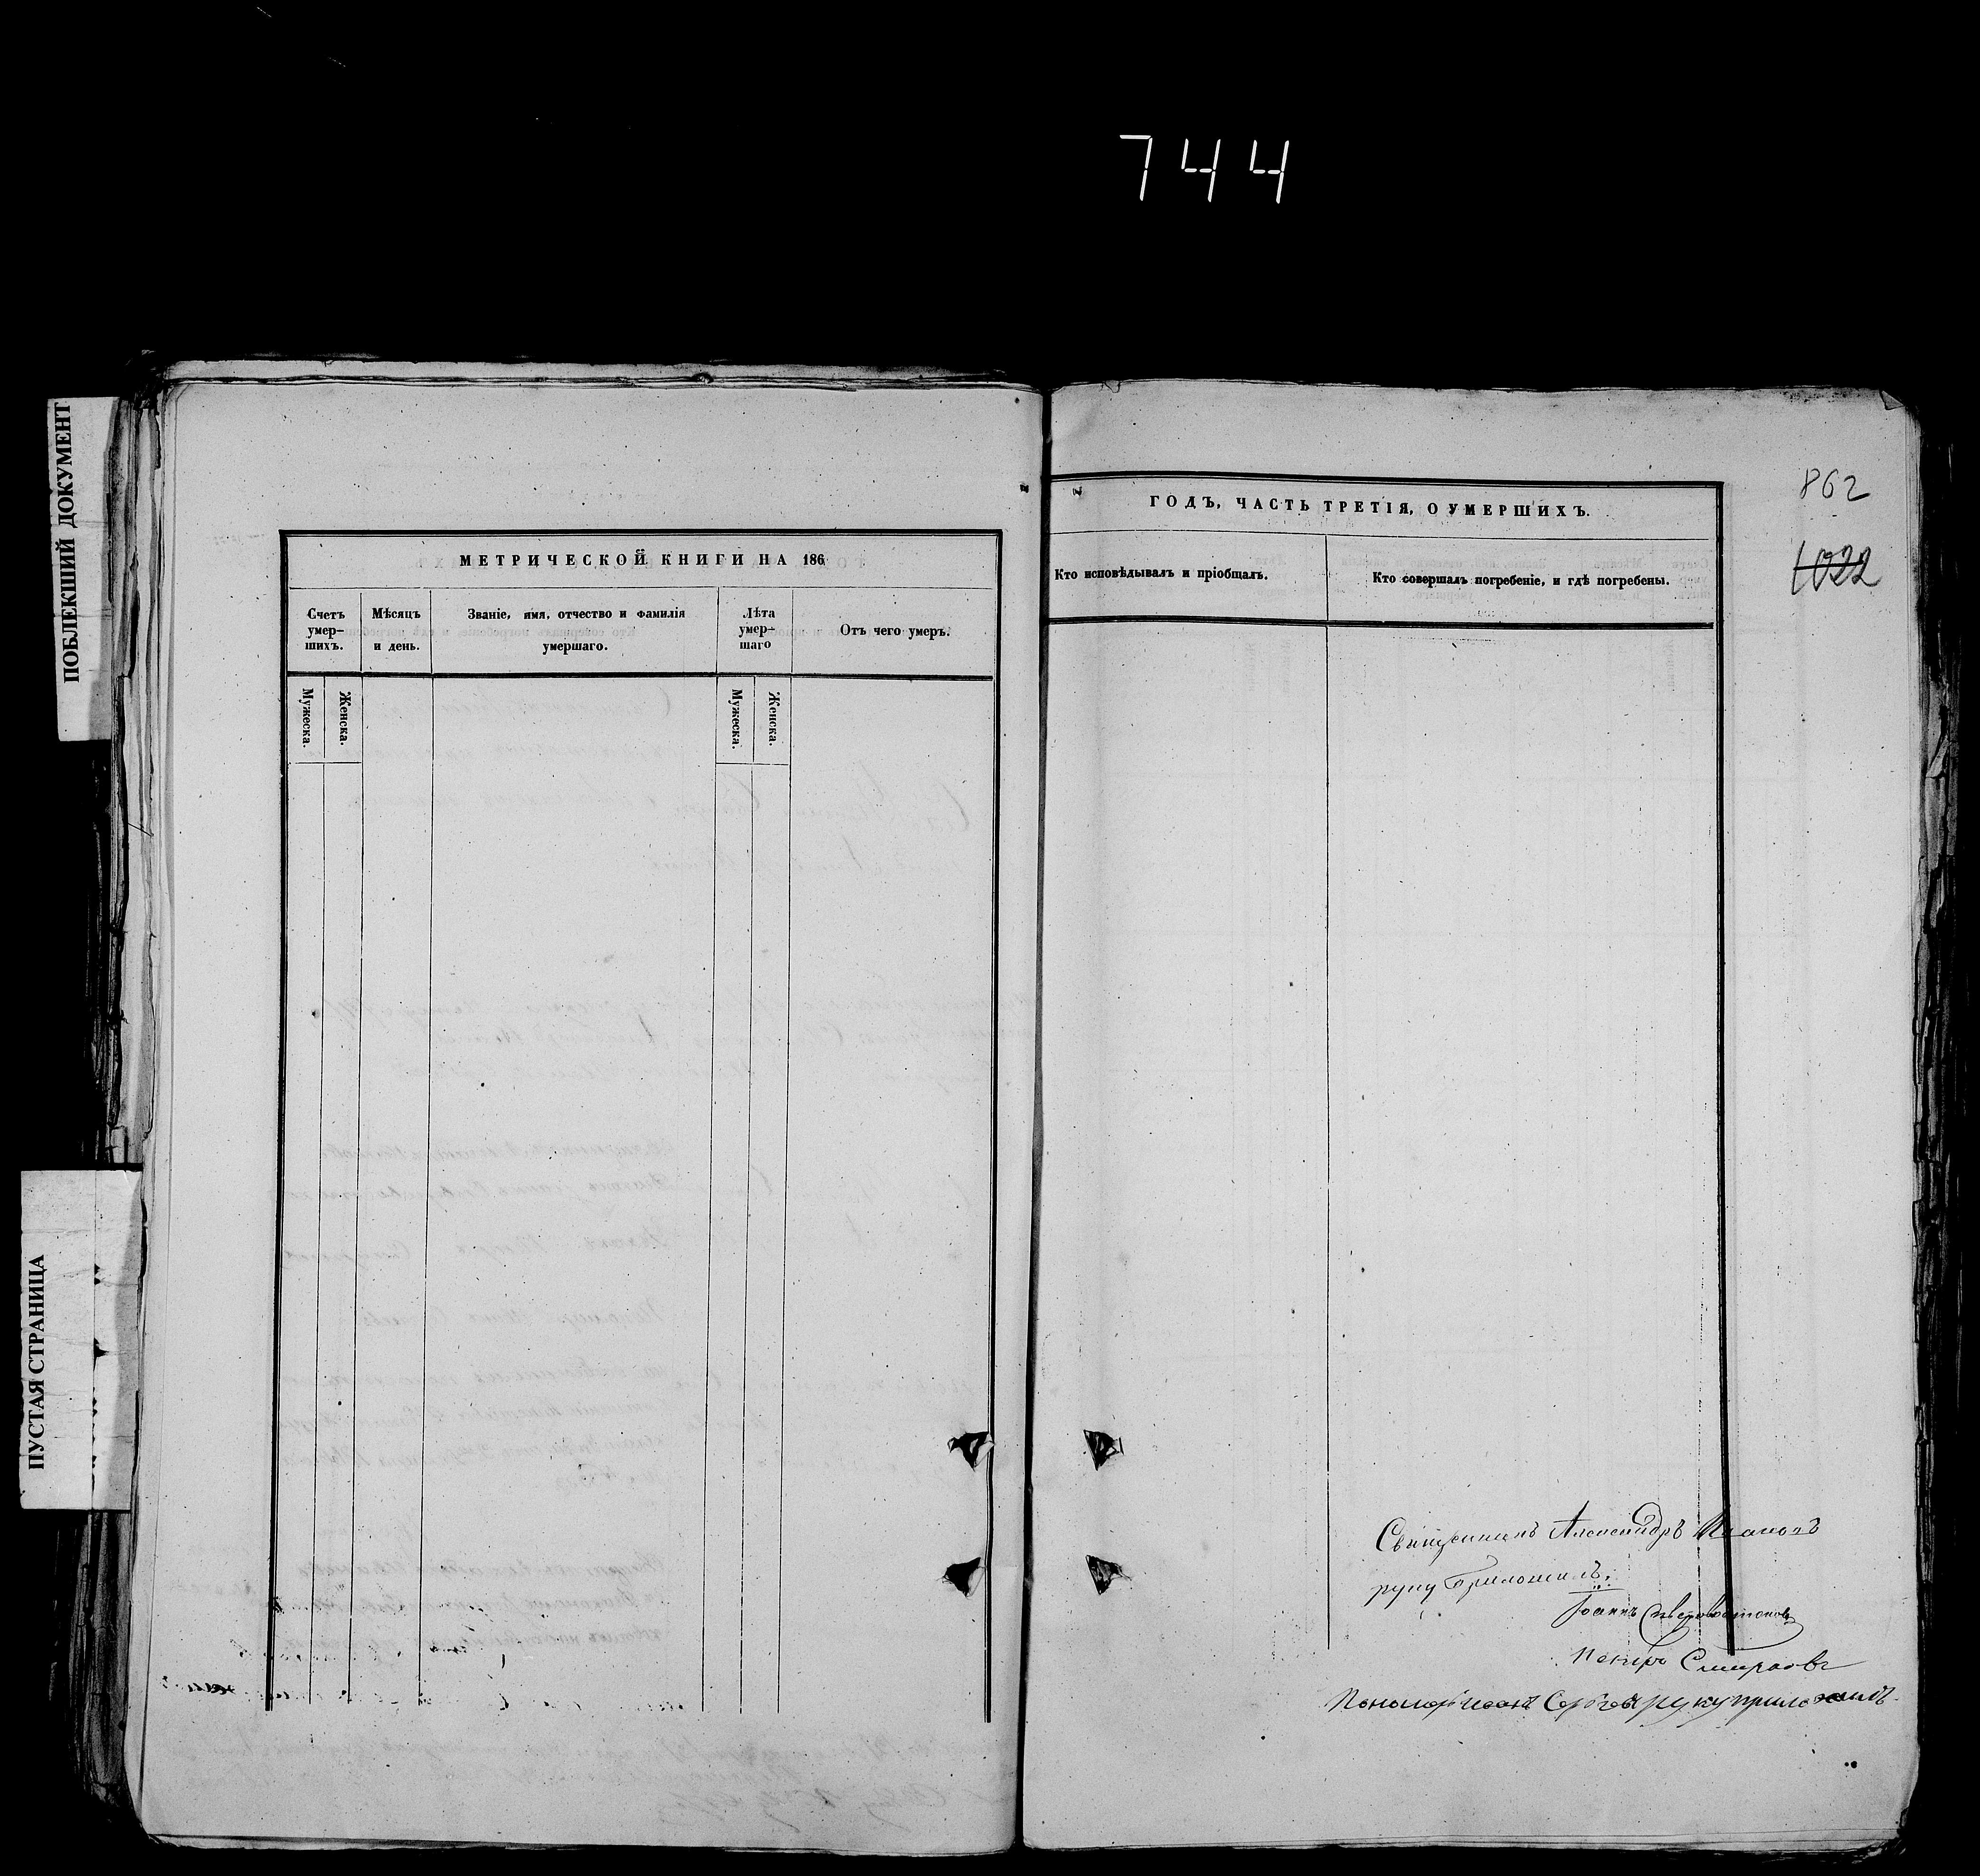 744
ПОБЛЕКШИЙ ДОКУМЕНТ
ПУСТАЯ СТРАНИЦА
МЕТРИЧЕСКОЙ КНИГИ НА 186
Счетъ умер-шихъ.
Мѣсяцъ и день.
Званіе, имя, отчество и фамилія умершаго.
Лѣта умер-шаго
Отъ чего умеръ.
Мужеска.
Женска.
Мужеска.
Женска.
ГОДЪ, ЧАСТЬ ТРЕТІЯ, О УМЕРШИХЪ.
862
1022
Кто исповѣдывалъ и пріобщалъ.
Кто совершалъ погребеніе, и гдѣ погребены.
Священникъ Александръ
руку приложилъ.
Іоаннъ
Петръ Смирновъ
Пономарь Иванъ Сергѣевъ руку приложилъ